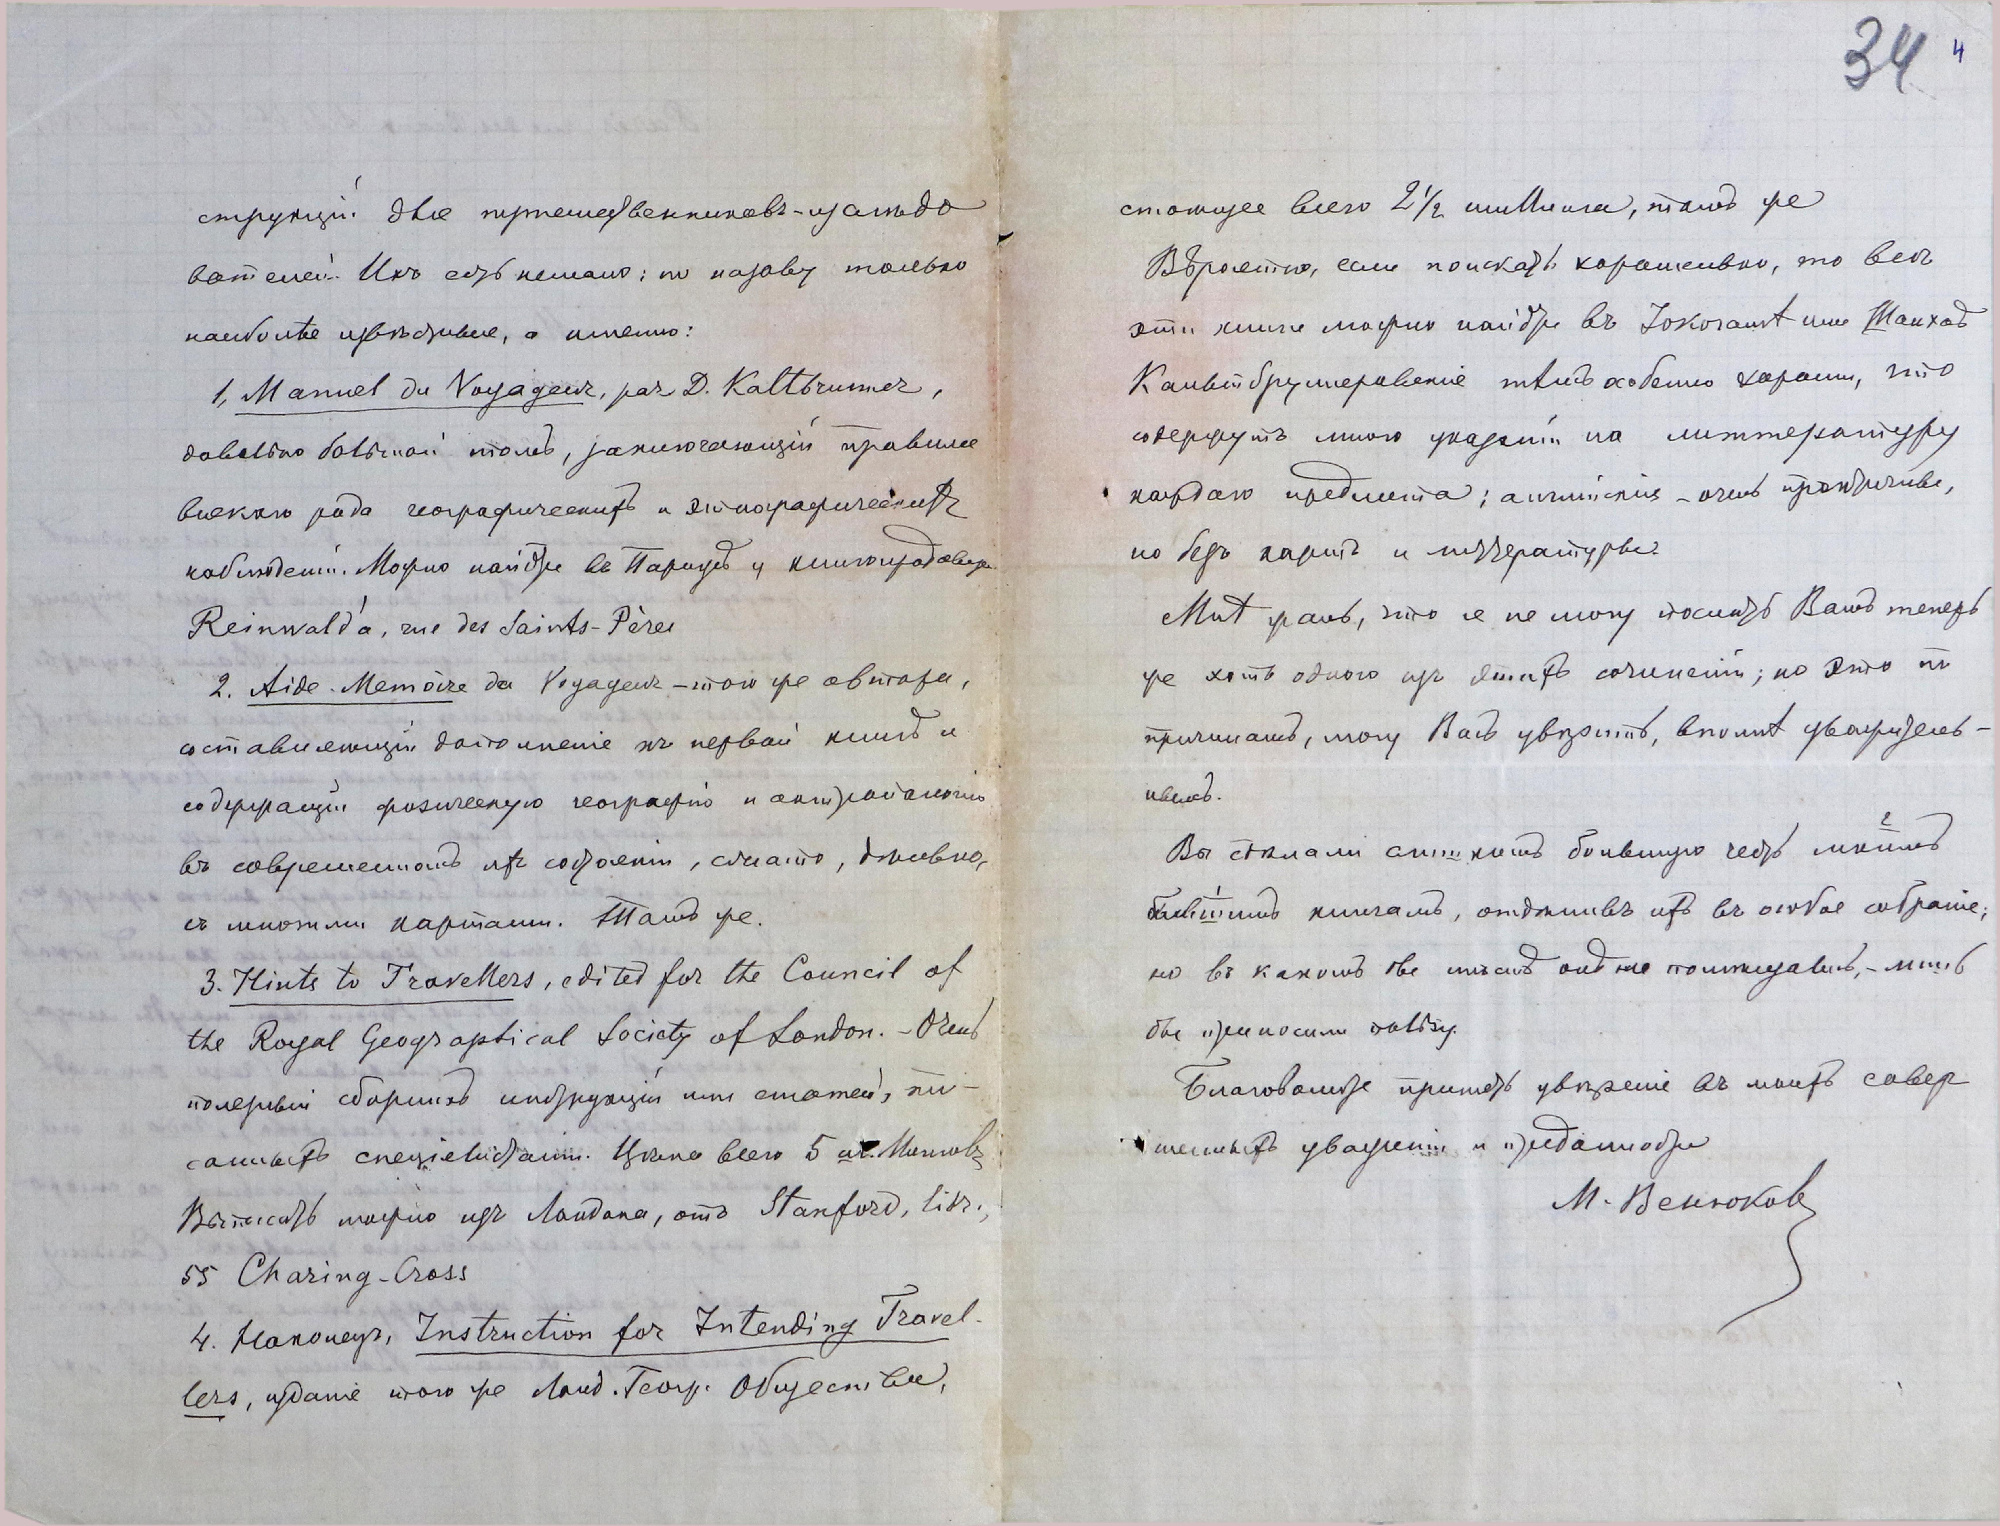 струкцій для путешественниковъ-изслѣдо
вателей. Ихъ есть немало; но назову только
наиболѣе извѣстныя, а именно:
1, Manuel du Voyageur, par D. Kaltbrunner,
довольно большой томъ, заключающій правила
всякаго рода географическихъ и этнографическихъ
наблюденій. Можно найдти въ Парижѣ у книгопродавца
Reinwald'a, rue des Saints-Pères
2. Aide-Memoire du Voyageur - того же автора,
составляющій дополненіе къ первой книгѣ и
содержащій физическую географію и антропологію
въ современномъ ихъ состояніи, сжато, дѣльно,
съ многими картами. Тамъ же.
3. Hints to Travellers, edited for the Council of
the Royal Geographical Society of London. - Очень
полезный сборникъ инструкцій или статей, пи-
санныхъ спеціалистами. Цѣна всего 5 шиллинговъ
Выписать можно изъ Лондона, отъ Stanford, libr.,
55 Charing-Cross
4. Наконецъ, Instruction for Intending Travel-
lers, изданіе того же Лонд. Геогр. Общества,
34 4
стоющее всего 2 1/2 шиллинга, тамъ же
Вѣроятно, если поискать хорошенько, то всѣ
эти книги можно найдти въ Іокогамѣ или Шанхаѣ
Кальтбруннеровскіе тѣмъ особенно хороши, что
содержутъ много указаній на литтературу
каждаго предмета; англійскія - очень практичны,
но безъ картъ и литтературы.
Мнѣ жаль, что я не могу послать Вамъ теперь
же хоть одного изъ этихъ сочиненій; но это по
причинамъ, могу Васъ увѣрить, вполнѣ уважитель-
нымъ.
Вы сдѣлали слишкомъ большую честь моимъ
бывшимъ книгамъ, отдѣливъ ихъ въ особое собраніе;
но въ какомъ бы мѣстѣ онѣ не помѣщались, - лишь
бы приносили пользу.
Благоволите принять увѣреніе въ моихъ совер
шенныхъ уваженіи и преданности
М. Венюковъ